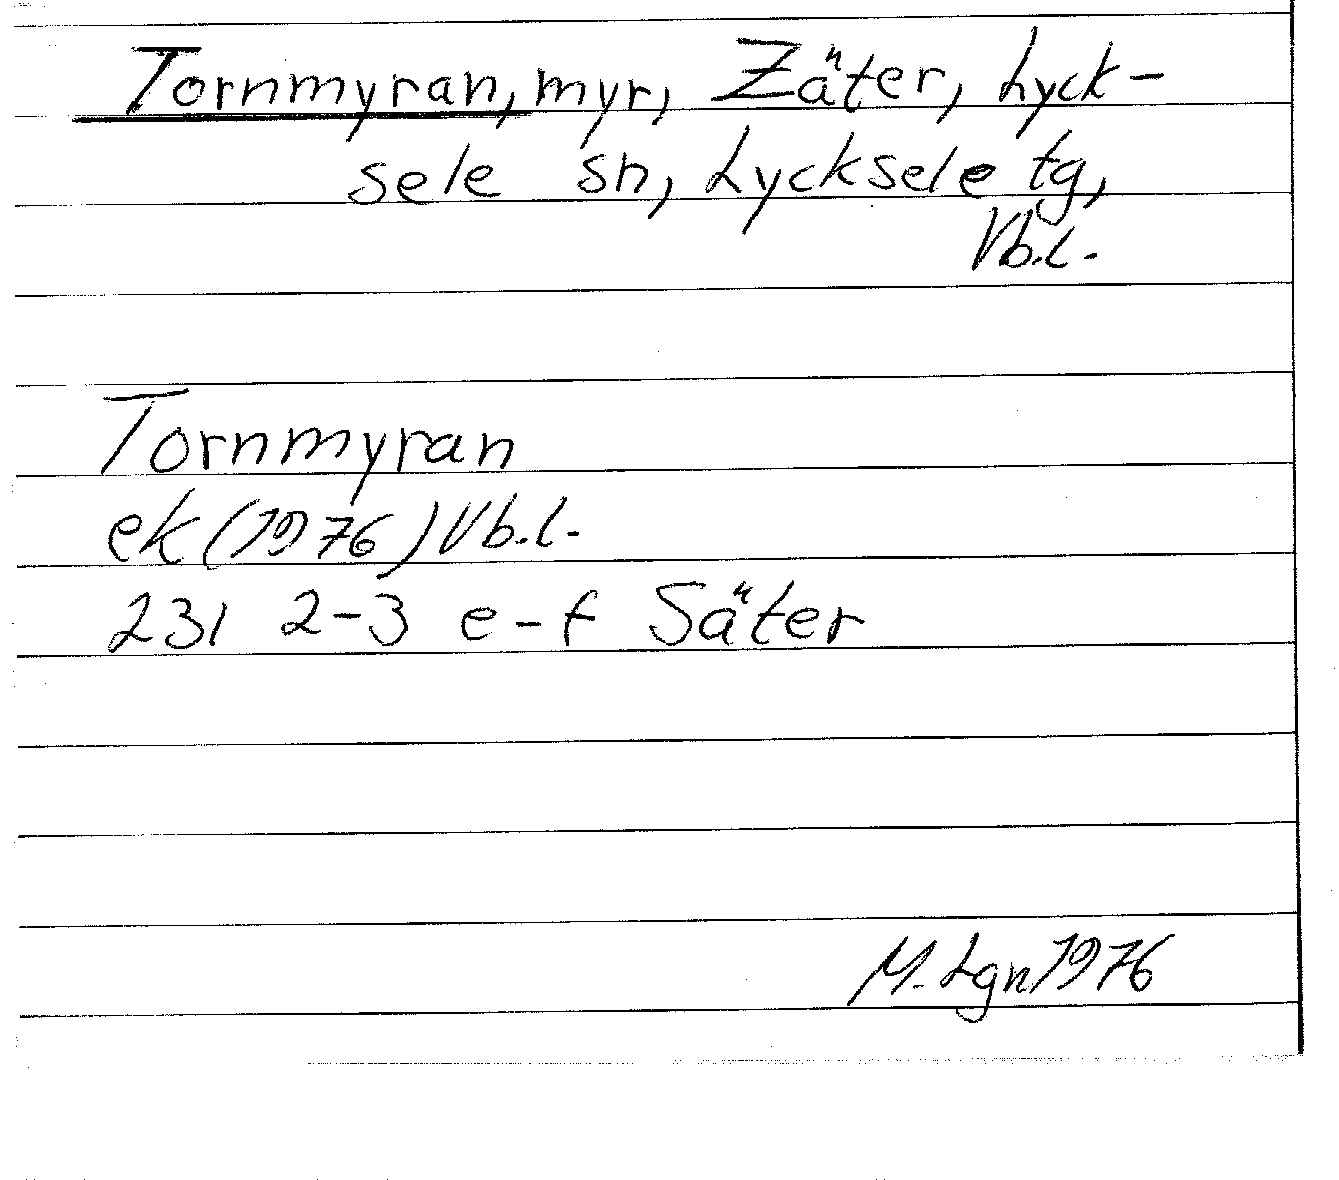 Tornmyran, myr, Zäter, Lyck-
sele sn, Lycksele tg,
Vb.l.
Tornmyran
ek (1976) Vb.l.
231 2-3 e-f Säter
M. Lgn 1976